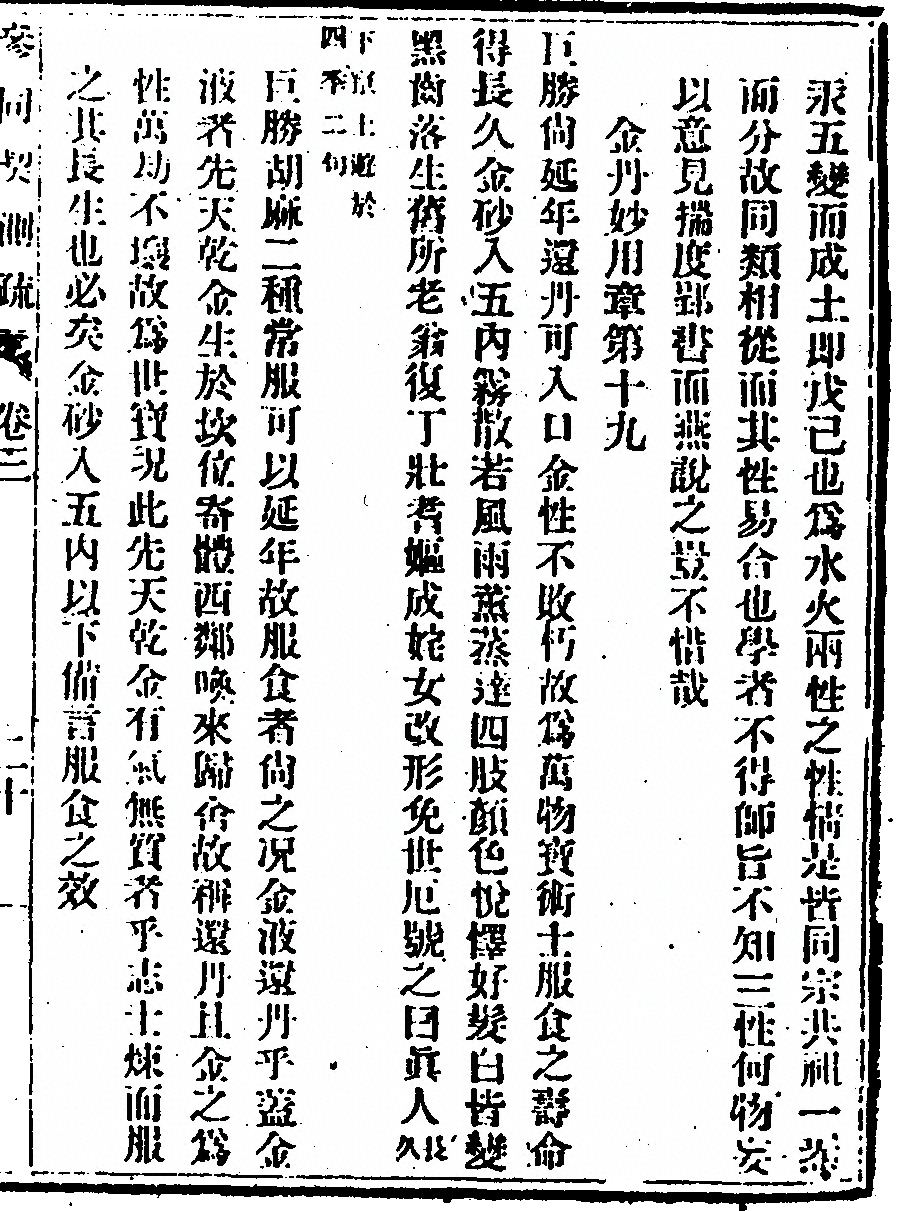 汞五變而成土即戊己也爲水火兩性之性情是皆同宗共祖一氣
而分故同類相從而其性易合也學者不得師旨不知三性何物妄
以意見揣度郢書而燕說之豈不惜哉
金丹妙用章第十九
巨勝尚延年還丹可入口金性不敗朽故爲萬物寶術士服食之壽命
得長久金砂入五內霧散若風雨薰蒸達四肢顏色悅懌好髮白皆變
黑齒落生舊所老翁復丁壯耆嫗成姹女改形免世厄號之曰眞人長久
下原土遊於
四季二句
巨勝胡麻二種常服可以延年故服食者尚之况金液還丹乎蓋金
液者先天乾金生於坎位寄體西鄰喚來歸舍故稱還丹且金之爲
性萬劫不壞故爲世寶況此先天乾金有氣無質者乎志士煉而服
之其長生也必矣金砂入五內以下備言服食之效
參同契測疏 卷三 二十